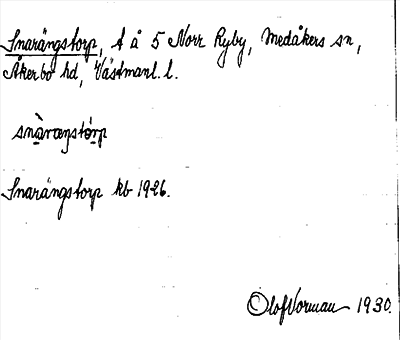 Snarängstorp, t å 5 Norr Ryby, Medåkers sn,
Åkerbo hd, Västmanl. l.
snàrængstòrp
Snarängstorp kb 1926.
Olof Norman 1930.